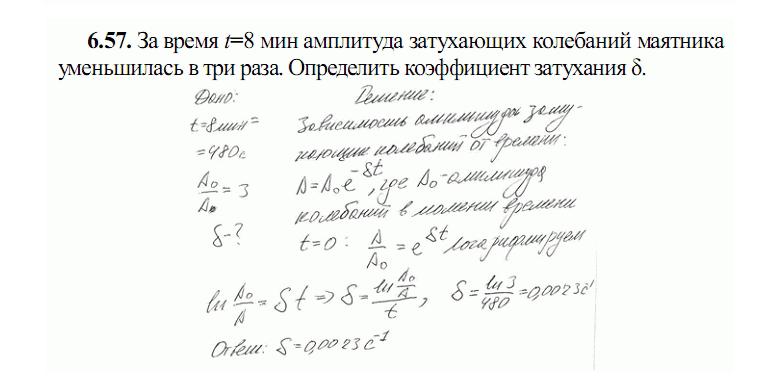 6.57. За время t=8 мин амплитуда затухающих колебаний маятника
уменьшилась в три раза. Определить коэффициент затухания δ.
Дано:
t=8мин=
=480с
A₀/A₀=3
δ-?
Решение:
Зависимость амплитуды зату-
хающие колебаний от времени:
A=A₀e^(-δt), где A₀-амплитуда
колебаний в момент времени
t=0: A/A₀=e^(δt) логарифмируем
ln A₀/A = δt ⇒ δ = (ln A₀/A)/t, δ = ln 3/480 = 0,0023 с⁻¹
Ответ: δ=0,0023 с⁻¹